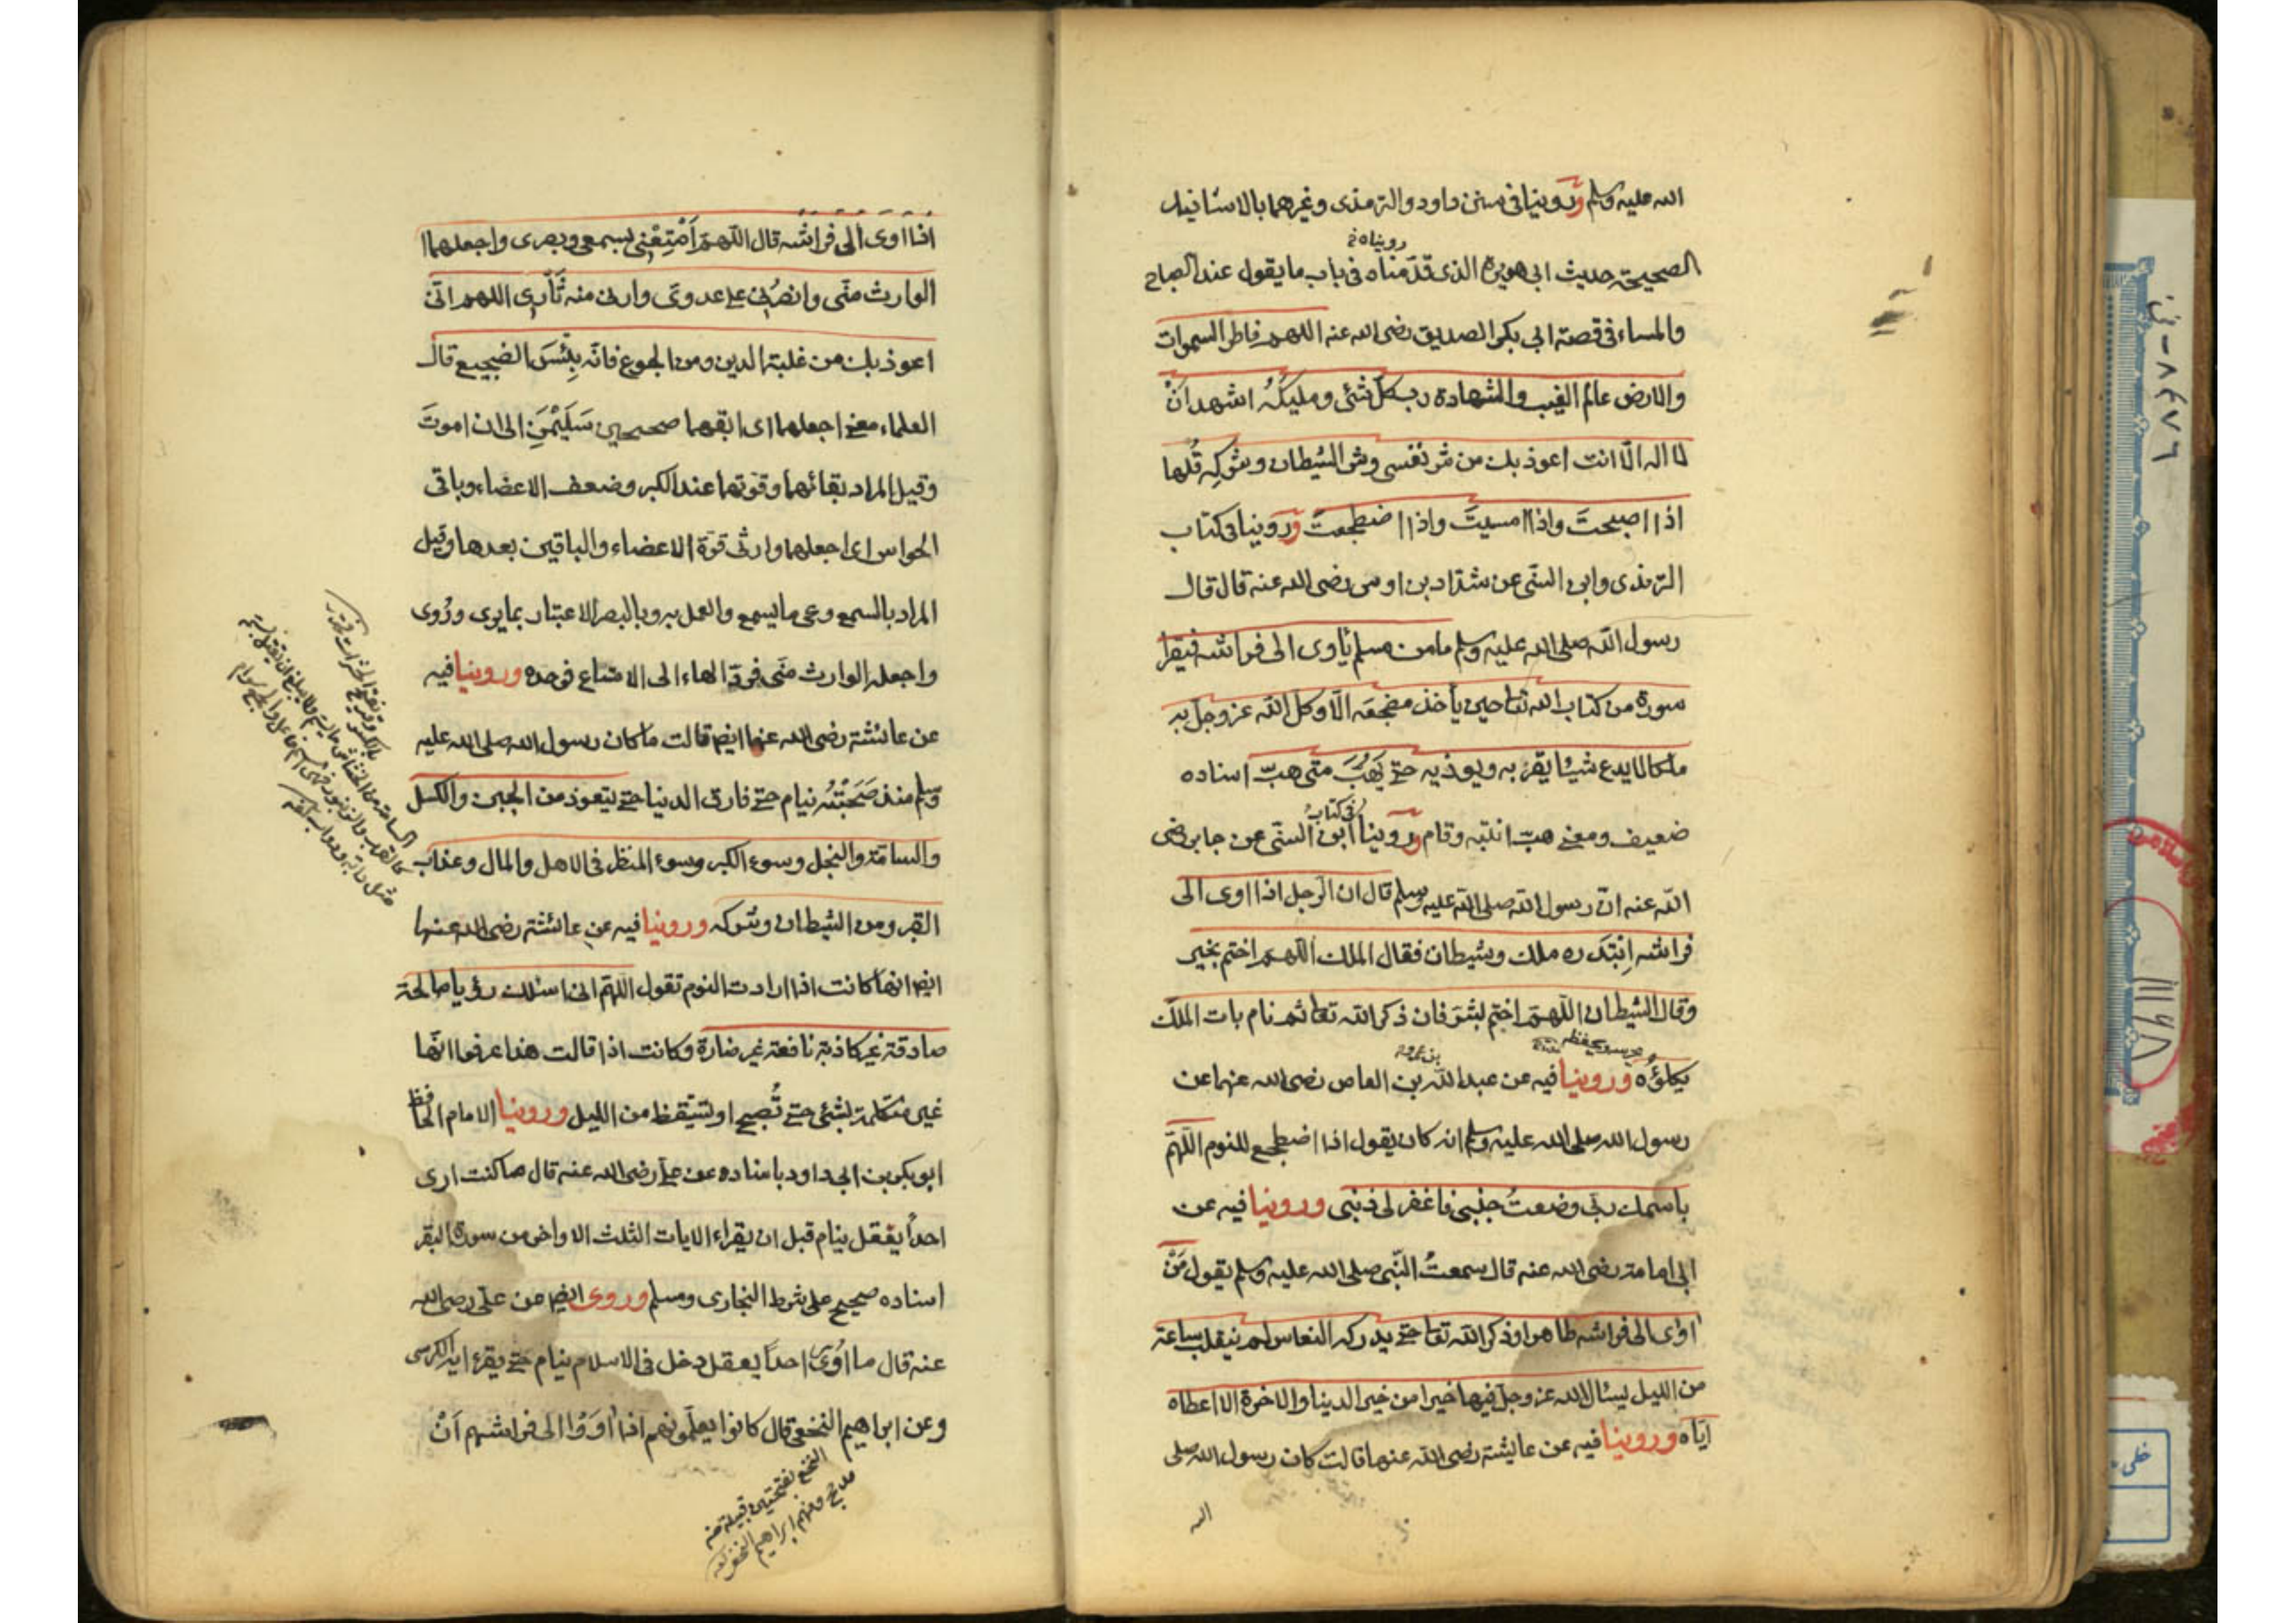 الله عليه وسلم وروينا فى سنن داود والترمذى وغيرهما بالاسانيد
روينا
الصحيحة حديث ابى هريرة الذى قدّمناه فى باب ما يقول عند الصباح
والمساء فى قصة ابى بكر الصديق رضى الله عنه اللهم فاطر السموات
والارض عالم الغيب والشهادة رب كلّ شئى ومليكهُ اشهد انْ
لا اله الّا انت اعوذ بك من شر نفسى وشر الشيطان وشركِه قُلها
اذا اصبحتَ واذا امسيتَ واذا اضطجعتَ وروينا فى كتاب
الترمذى وابن السنّى عن شدّاد بن اوس رضى الله عنه قال قال
رسول الله صلى الله عليه وسلم ما من مسلم يأوى الى فراشه فيقرا
سورة من كتاب الله تعا حين يأخذ مضجعه الّا وكل الله عز وجل به
ملكا لا يدع شيئا يقربه ويوذيه حتى يَهُبَّ متى هبّ اسناده
فى كتاب
ضعيف ومعنى هبّ انتبه وقام وروينا ابن السنّى عن جابر رضى
الله عنه انّ رسول الله صلى الله عليه وسلم قال ان الرّجل اذا اوى الى
فراشه اِبْتَدَره ملك وشيطان فقال الملك اللهم اختم بخير
وقال الشيطان اللّهمّ اختم بشرّ فان ذكر الله تعا ثم نام بات الملك
يحفظه
يكلؤه وروينا فيه عن عبد الله بن العاص رضى الله عنهما عن
رسول الله صلى الله عليه وسلم انه كان يقول اذا اضطجع للنوم اللّهمّ
باسمك ربّى وضعتُ جنبى فاغفر لى ذنبى وروينا فيه عن
ابى امامة رضى الله عنه قال سمعتُ النّبى صلى الله عليه وسلم يقول مَنْ
اوى الى فراشه طاهرا وذكر الله تعا حتى يدركه النعاس لم ينقلب ساعة
من الليل يسئال الله عز وجلّ فيها خيرا من خير الدينا والاخرة الا اعطاه
ايّاه وروينا فيه عن عايشة رضى الله عنهما قالت كان رسول الله صلى
الله
اذا اوى الى فراشه قال اللهمّ اَمْتِعْنى بسمعى وبصرى واجعلهما
الوارث منّى وانصُرنى على عدوى وارنى منه ثَأرى اللهم انّى
اعوذ بك من غلبة الدين ومن الجوع فانّه بِئْسَ الضجيع قال
العلماء معنى اجعلهما اى ابقهما صحيحين سَليْمَيْنِ الى ان اموتَ
وقيل المراد بقائهما وقوتهما عند الكبر وضعف الاعضاء وباقى
الحواس اى اجعلهما وارثى قوّة الاعضاء والباقين بعدها وقيل
المراد بالسمع وعى ما يسمع والعمل به وبالبصر الاعتبار بما يرى ورُوى
واجعله الوارث منّى فردّ الهاء الى الامتاع فوحده وروينا فيه
عن عائشة رضى الله عنها ايضا قالت ما كان رسول الله صلى الله عليه
وسلم منذ صَحَبْتُه نيام حتى فارق الدينا حتى يتعوذ من الجبن والكسل
والسامة والبخل وسوء الكبر وسوء المنظر فى الاهل والمال وعذاب
القبر ومن الشيطان وشركه وروينا فيه عن عائشة رضى الله عنها
ايضا انها كانت اذا ارادت النوم تقول اللّهمّ انى اسئلك رؤيا صالحة
صادقة غير كاذبة نافعة غير ضارة وكانت اذا قالت هذا عرفوا انّها
غير متكلمة بشئى حتى تُصبح او تستيقظ من الليل وروينا الامام الحافظ
ابو بكر بن ابى داود باسناده عن على رضى الله عنه قال ما كنت ارى
احداً يعقل ينام قبل ان يقراء الايات الثلث الاواخر من سورة البقر
اسناده صحيح على شرط البخارى ومسلم وروى ايضا عن على رضى الله
عنه قال ما ارى احداً يعقل دخل فى الاسلام ينام حتى يقرء اية الكرسى
وعن ابراهيم النخعى قال كانوا يعلّمونهم اذا اوَوْا الى فراشهم اَنْ
النخع بفتحتين قبيلة من
مذحج ومنهم ابراهيم النخعى
٨٤٧٦
خطى